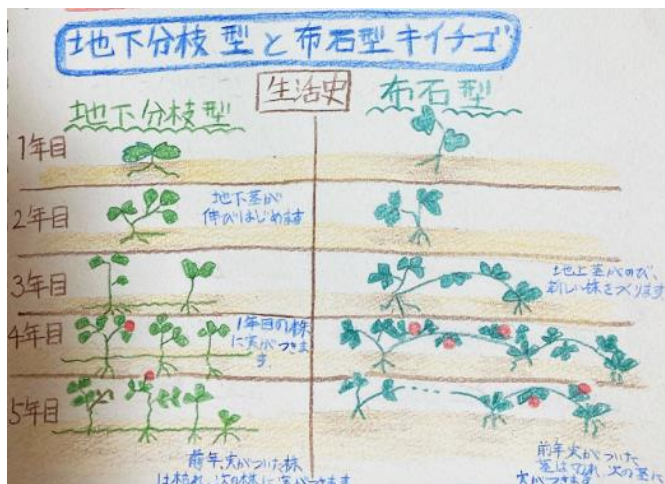 地下分枝型と布石型キイチゴ
生活史
地下分枝型
布石型
1年目
2年目
地下茎が
伸びはじめます
3年目
地上茎がのび、
新しい株をつくります
4年目
1年目の株
に実がつきま
す。
5年目
前年、実がついた株
は枯れ、次の株に実がつきます
前年実がついた
茎は切れ、次の茎に
実がつきます